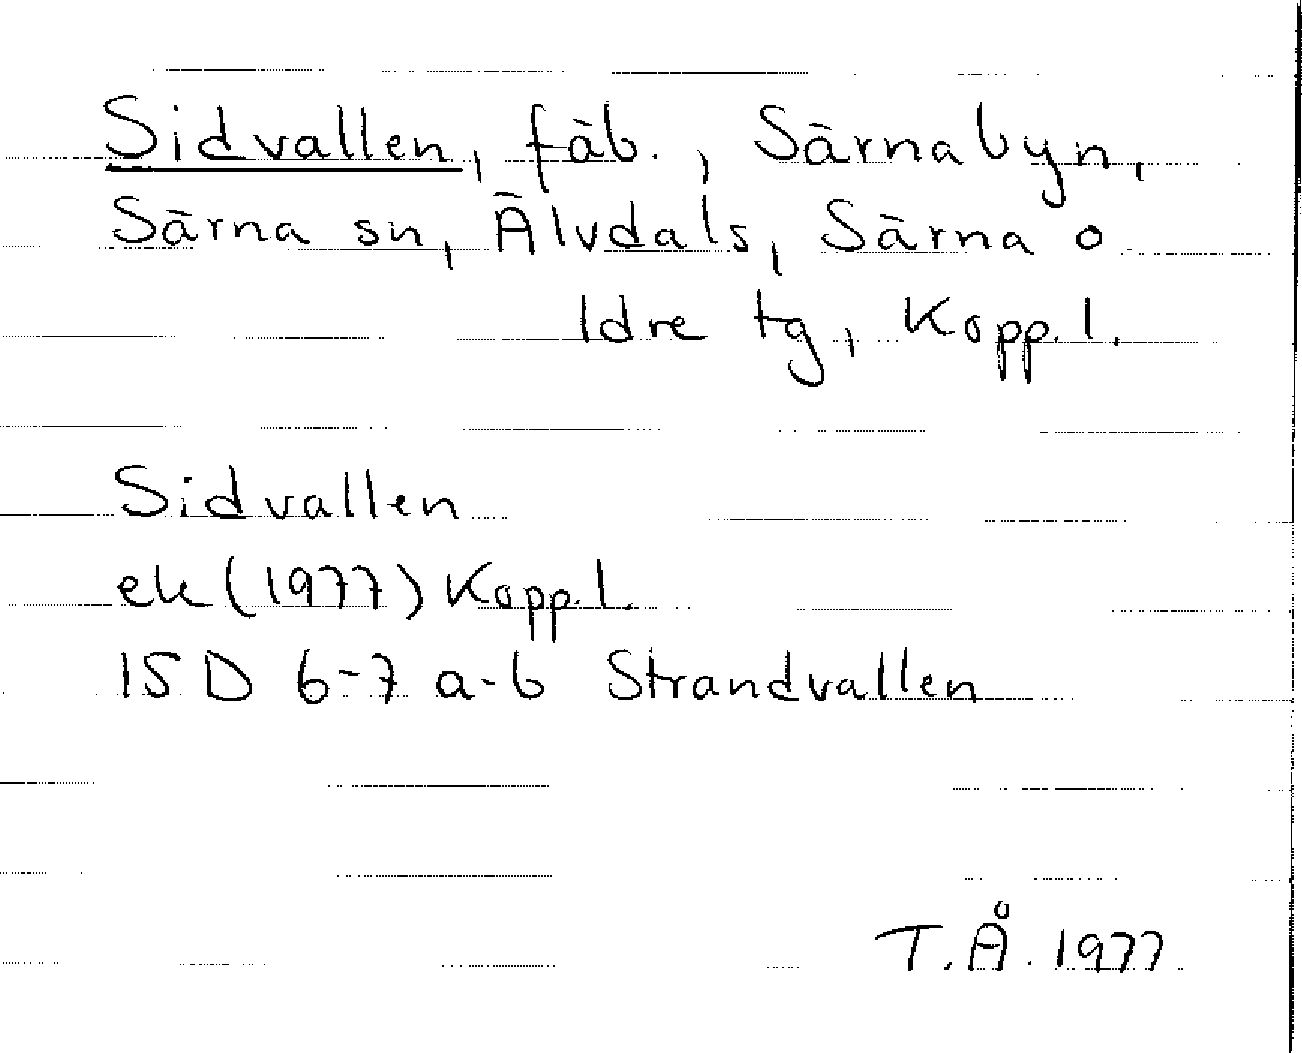 Sidvallen, fäb., Särnabyn,
Särna sn, Älvdals, Särna o
Idre tg, Kopp. l.
Sidvallen
ek (1977) Kopp. l.
15 D 6-7 a-b Strandvallen
T.Å. 1977